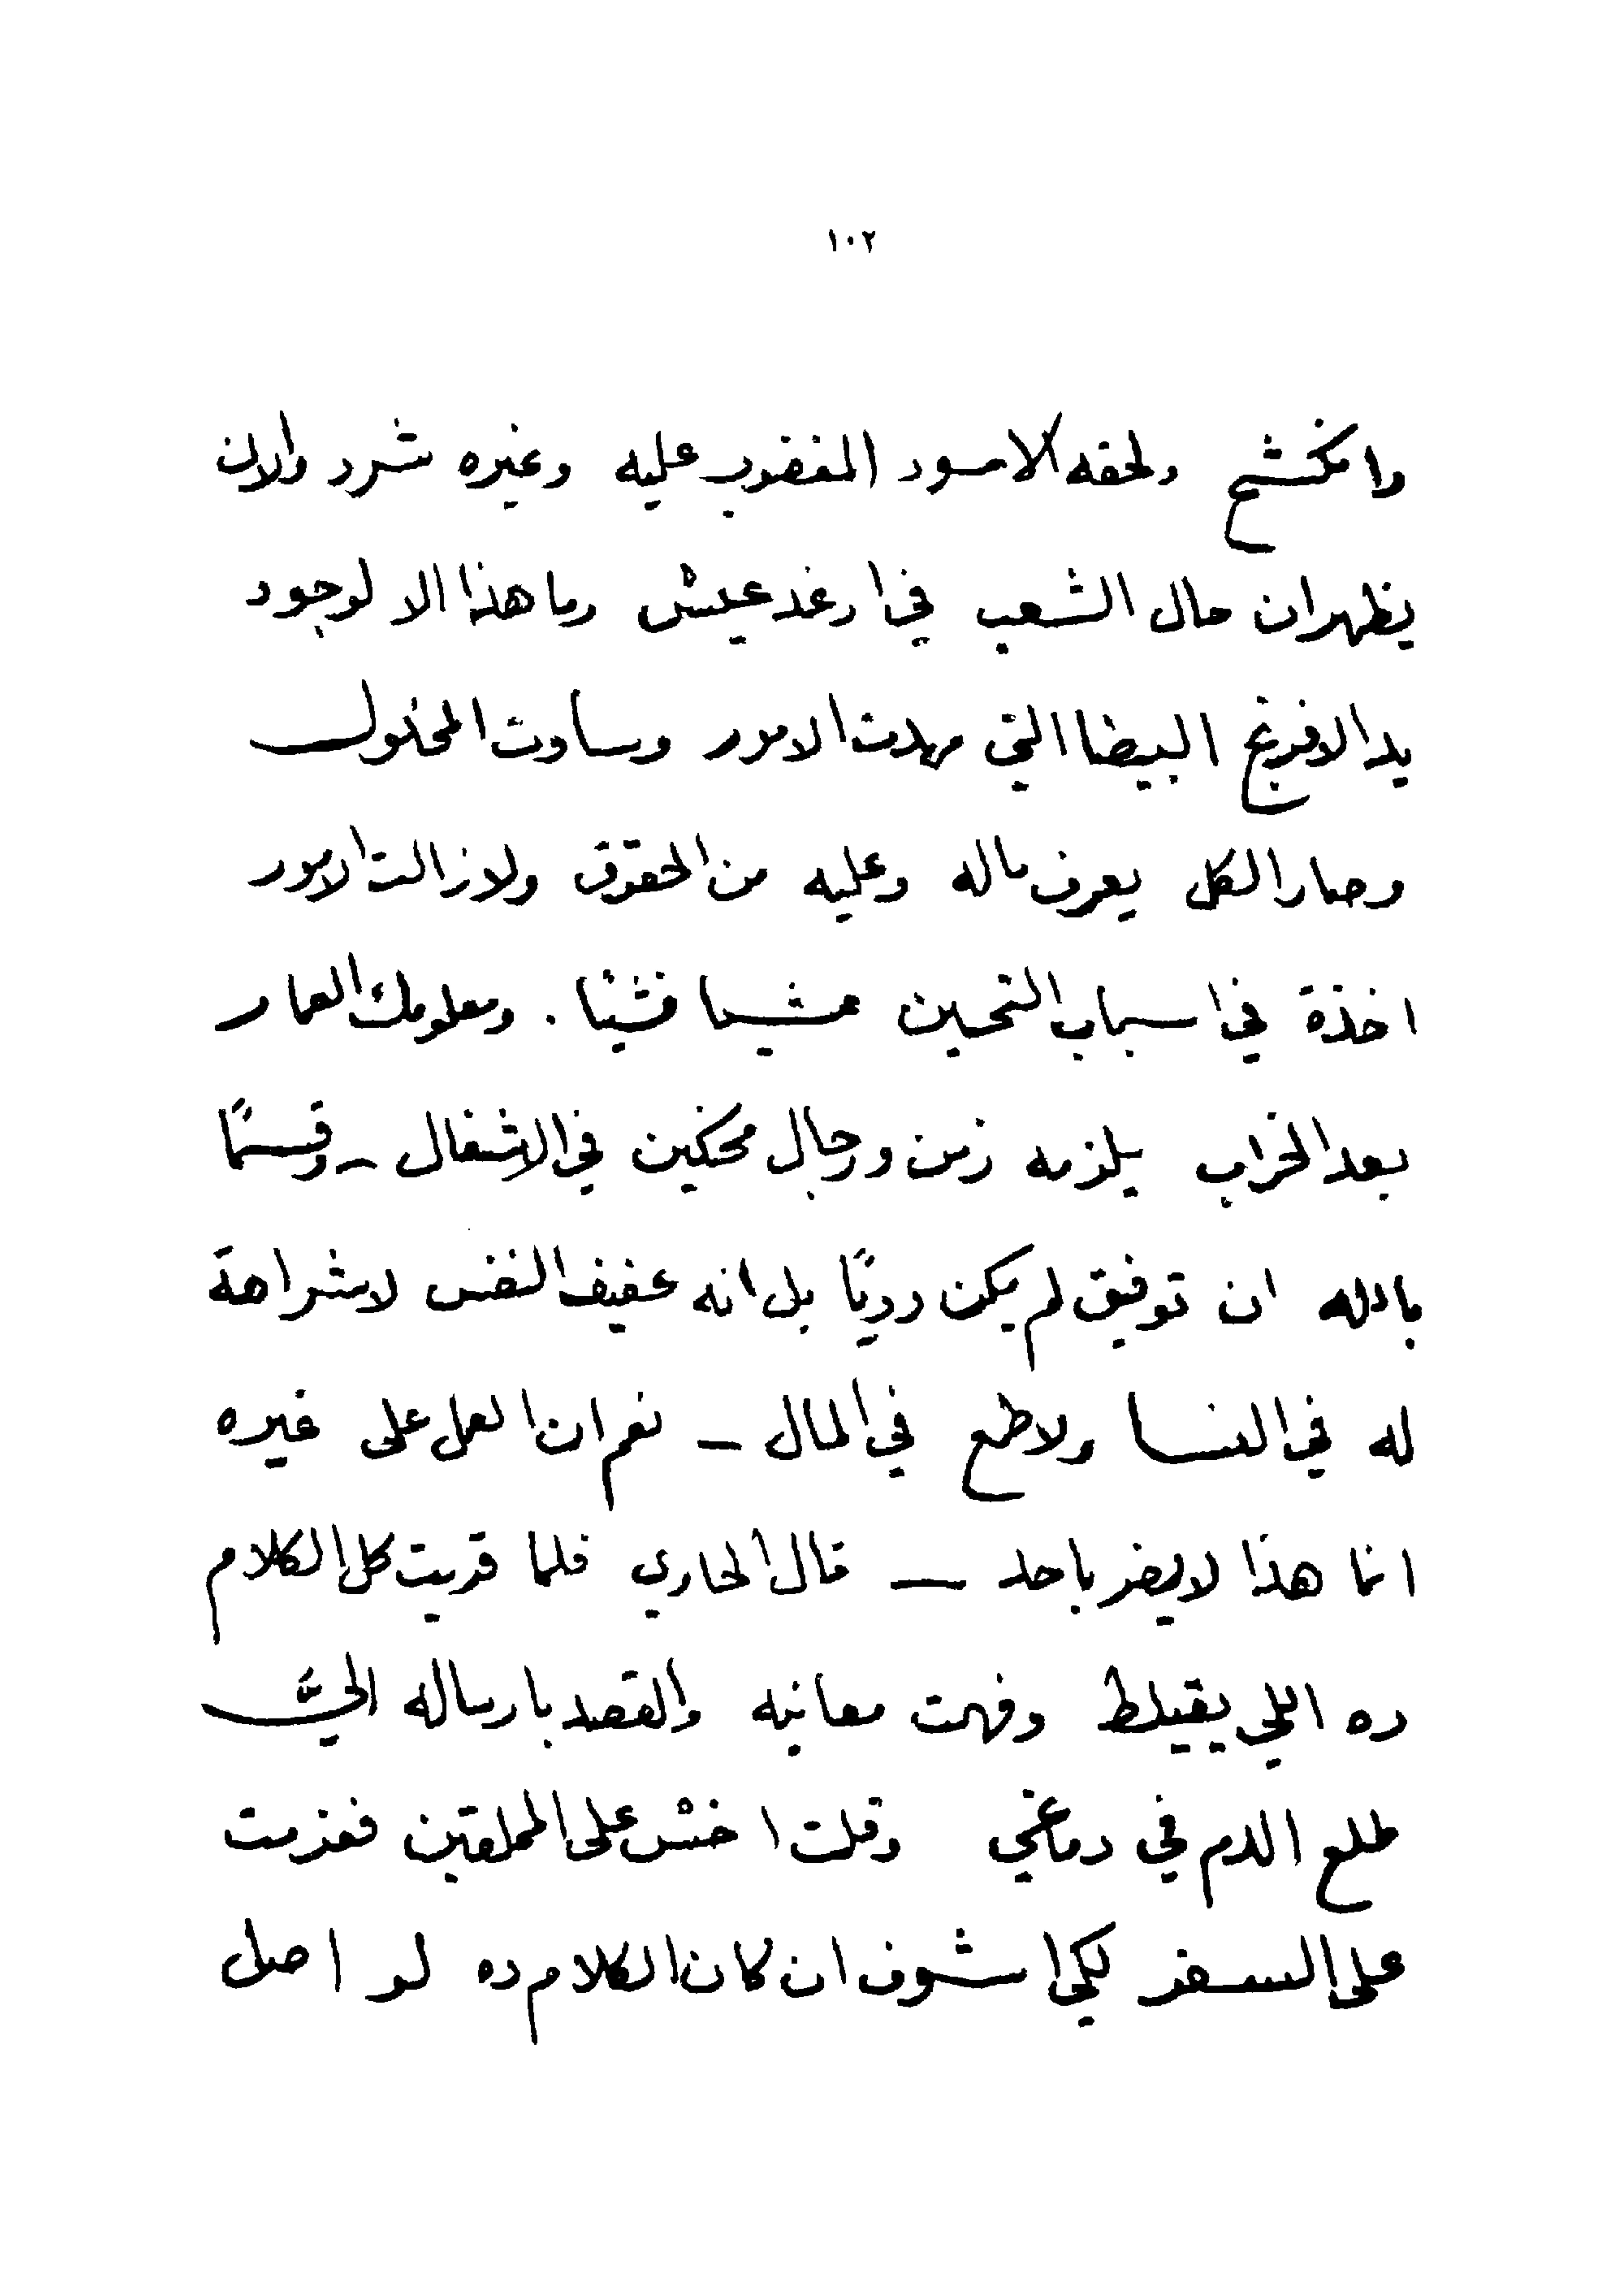 ١٠٢
وانكشح ولحقه الاسود المغضوب عليه وغيره شرد والان
يظهر ان حال الشعب في ارغد عيش وما هذا الا لوجود
يد الافرنج البيضا التي مهدت الامور وساوت المخلول
وصار الكل يعرف ماله وعليه من الحقوق ولازالت الامور
اخذة في اسباب التحسين شيا فشيا . ومعلومك العمار
بعد الخراب يلزمه زمن ورجال محنكين في الاشغال - وقسمًا
بالله ان توفيق لم يكن رديًا بل انه عفيف النفس لا شراهة
له في النسا ولا طمع في المال - نعم ان العمل على غيره
انما هذا لا يضر باحد — قال الحاوي فلما قريت كل الكلام
ده اللي يقيلط وفهمت معانيه والقصد بارساله اليَّ
طلع الدم في دماغي وقلت اخش على المملقين فعزمت
على السفر لكي اشوف ان كان الكلام ده لو اصل